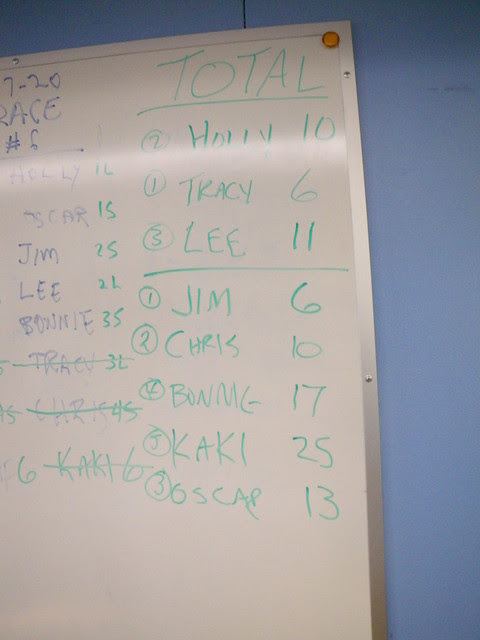 7-20
RACE
#6
HOLLY 1L
OSCAR 1S
JIM 2S
LEE 2L
BONNIE 3S
TRACY 3L
CHRIS 4S
6 KAKI 6
TOTAL
② HOLLY 10
① TRACY 6
③ LEE 11
① JIM 6
② CHRIS 10
④ BONNIE 17
⑤ KAKI 25
③ OSCAR 13